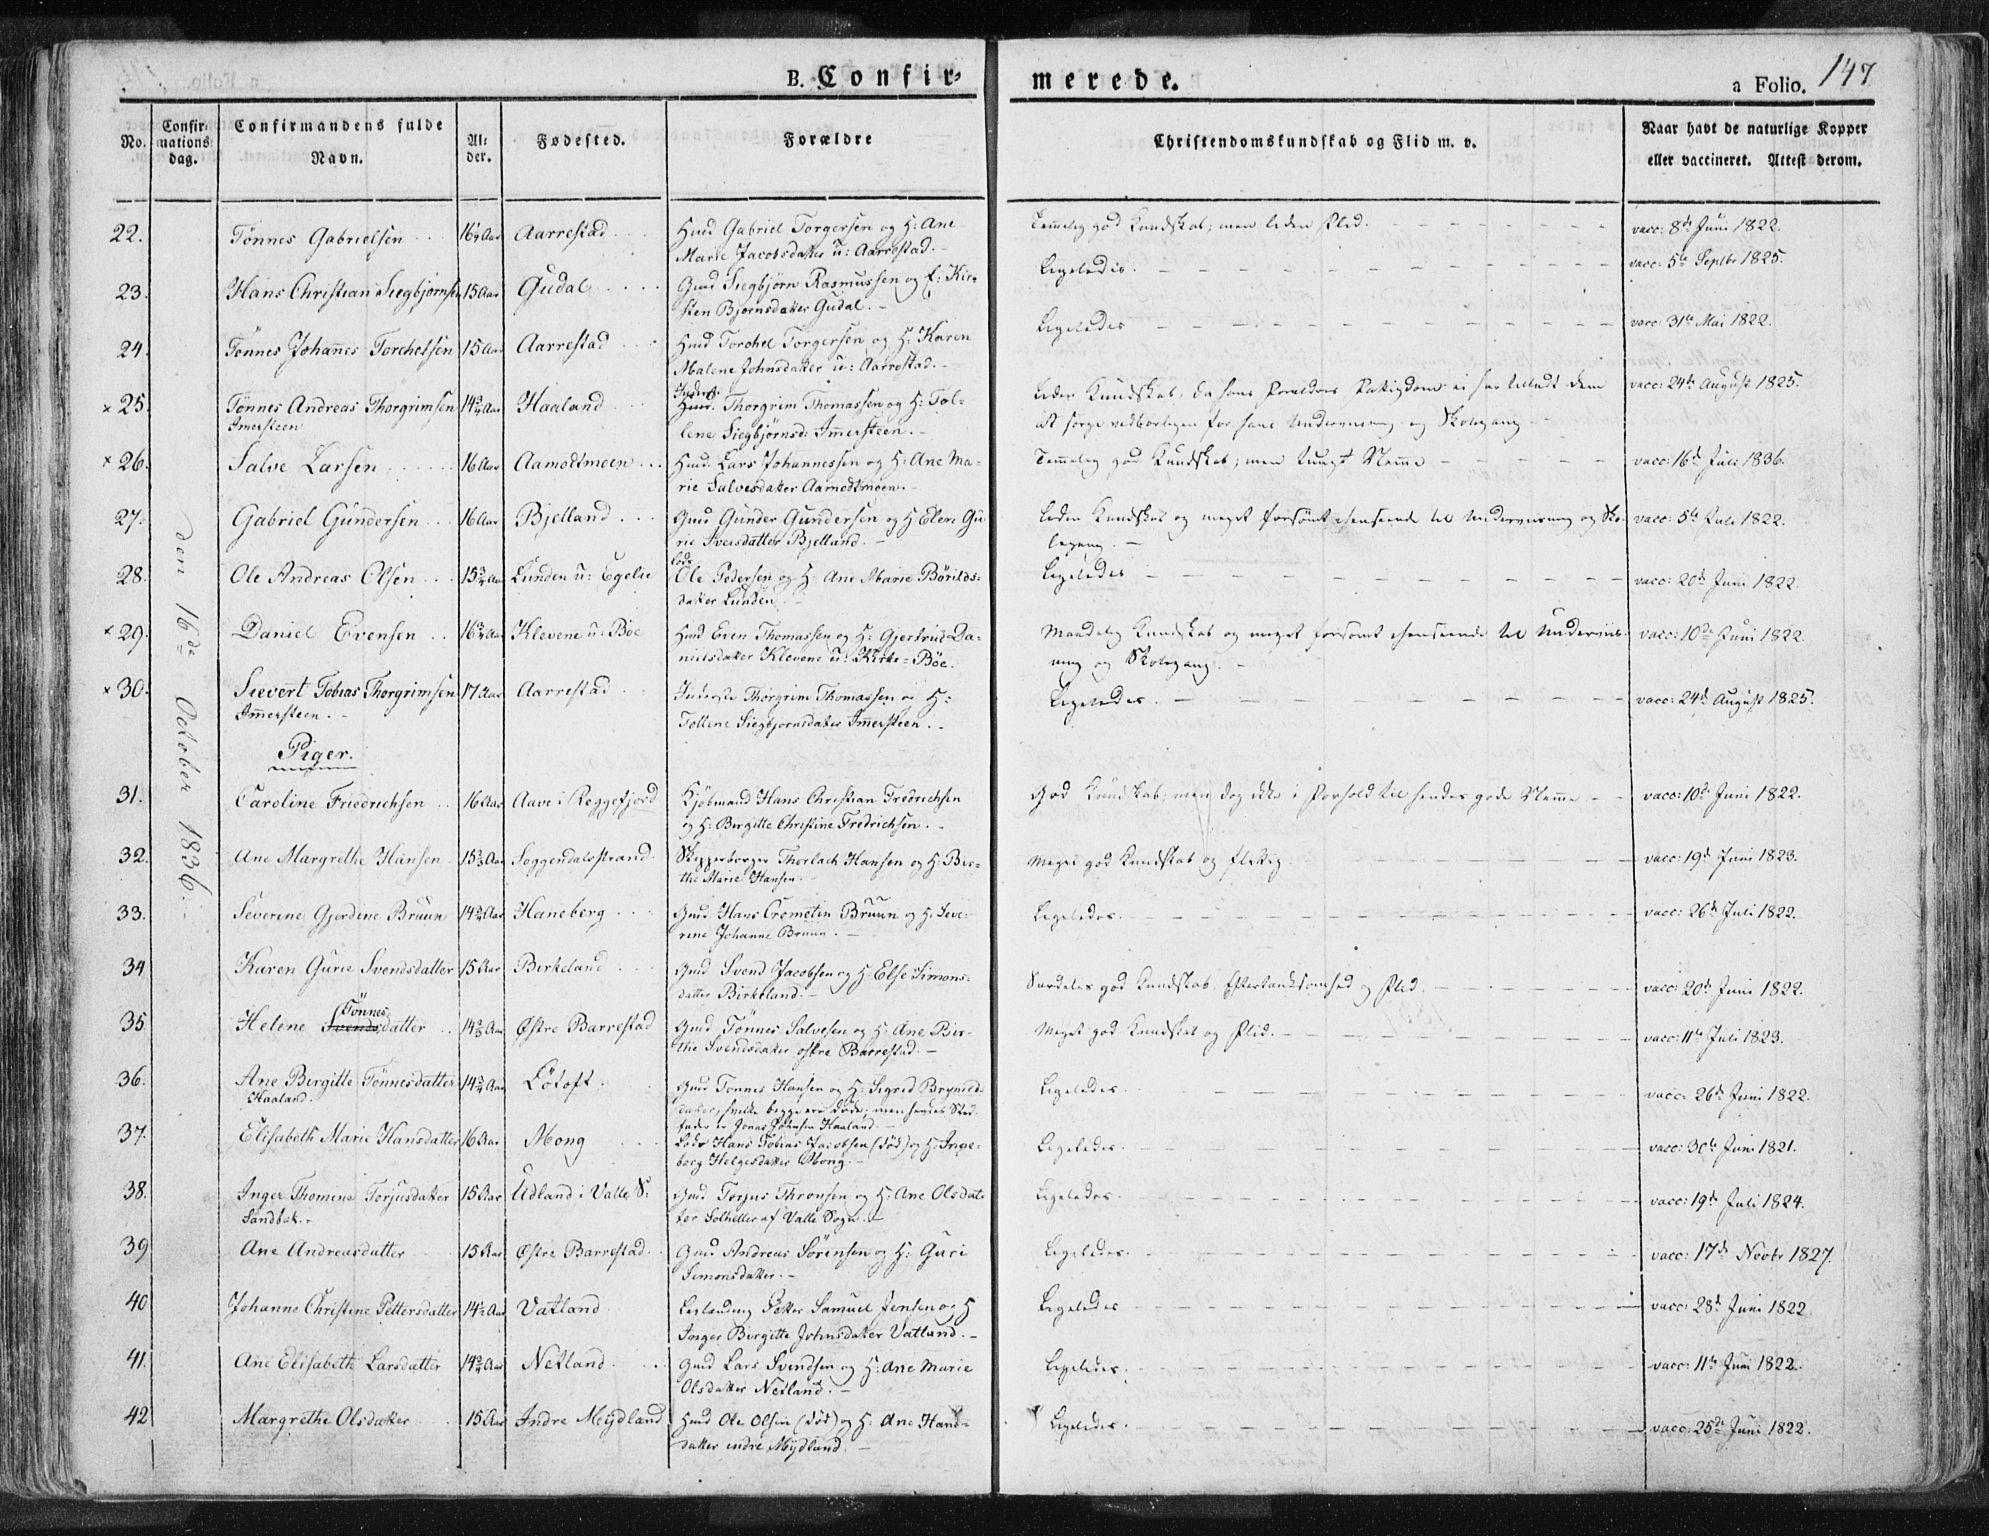 B. Confir-
merede.
a Folio. 147
No. Confirmationsdag. Confirmandens fulde Navn. Alder. Fødested. Forældre Christendomskundskab og Flid m. v. Naar havt de naturlige Kopper eller vaccineret. Attest derom.
den 16de October 1836.
22. Tönnes Gabrielsen 16 Aar Aarrestad Huusm Gabriel Torgersen og H: Ane Temmelig god Kundskab; men liden Flid. vacc: 8de Juni 1822.
Marie Jacobsdatter u: Aarrestad.
23. Hans Christian Siegbjörnsen 15 Aar Gudal Gmd Siegbjörn Rasmussen og H: Kir- Ligeledes. vacc: 5te Septbr 1825.
sten Bjørnsdatter Gudal.
24. Tönnes Johannes Torchelsen 15 Aar Aarrestad Hmd Torchel Torgersen og H: Karen Ligeledes vacc: 31te Mai 1822.
Malene Johnsdatter u: Aarrestad.
× 25. Tönnes Andreas Thorgrimsen 14 3/4 Aar Haaland Thorgrim Thomassen og H: Tol- Liden Kundskab, da hans Forældres Fattigdom ei har tilladt dem vacc: 24de August 1825.
Imersteen lene Siegbjørnsd: Imersteen. at sørge vedbørligen for hans Underviisning og Skolegang
× 26. Salve Larsen 16 Aar Aamodtmoen Hmd. Lars Johannessen og H: Ane Ma- Temmelig god Kundskab; men tungt Nemme vacc: 16de Juli 1836.
rie Salvesdatter Aamodtmoen.
27. Gabriel Gundersen 16 Aar Bjelland Gmd Gunder Gundersen og H Elen Gu- Liden Kundskab og meget forsömt henseende til Underviisning og Sko- vacc: 5te Juli 1822.
rie Iversdatter Bjelland. legang.
28. Ole Andreas Olsen 15 3/4 Aar Lunden u: Egelie Ole Pedersen og H: Ane Marie Börilds- Ligeledes vacc: 20de Juni 1822
datter Lunden.
× 29. Daniel Evensen 16 3/4 Aar Klevene u: Böe Hmd Even Thomassen og H: Gjertrud Da- Maadelig Kundskab og meget forsömt henseende til Underviis- vacc: 10de Juni 1822.
nielsdatter Klevene u: Kirke-Böe. ning og Skolegang.
× 30. Sievert Tobias Thorgrimsen 17 Aar Aarrestad Inderste Thorgrim Thomassen og H: Ligeledes. vacc: 24de August 1825.
Imersteen. Tollene Siegbjornsdatter Imersteen.
Piger.
31. Caroline Friedrichsen 16 Aar Aave i Reggefjord Kjöbmand Hans Christian Fredrichsen God Kundskab; men dog ikke i Forhold til hendes gode Nemme vacc: 10de Juni 1822.
og H: Birgitte Christine Fredrichsen.
32. Ane Margrethe Hansen 15 3/4 Aar Soggendalsstrand. Skipperborger Thorlach Hansen og H: Bir- Meget god Kundskab og flittig vacc: 19de Juni 1823.
the Marie Hansen.
33. Severine Gjordine Bruun 14 3/4 Aar Haneberg Gmd. Hans Crometin Bruun og H: Seve- Ligeledes. vacc: 26de Juli 1822.
rine Johanne Bruun.
34 Karen Gurie Svendsdatter 15 Aar Birkeland Gmd Svend Jacobsen og H: Else Simons- Særdeles god Kundskab, Eftertanksomhed og Flid. vacc: 20de Juni 1822.
datter Birkeland.
35 Helene Tönnesdatter 14 Aar Østre Barrestad Gmd Tönnes Salvesen og H: Ane Bir- Meget god Kundskab og Flid. vacc: 11te Juli 1823.
the Svendsdatter østre Barrestad.
36. Ane Birgitte Tönnesdatter 14 3/4 Aar Lötoft. Gmd Tönnes Hansen og H: Sigrid Brynilds- Ligeledes. vacc: 26de Juni 1822.
Haaland. datter, hvilke begge ere døde; men hendes Sted-
fader er Jonas Haaland.
37. Elisabeth Marie Hansdatter 16 Aar Mong Lods Hans Tobias Jacobsen (död) og H: Inge- Ligeledes. vacc: 30te Juni 1821.
borg Helgesdatter Mong.
38. Inger Thomine Torjusdatter 15 Aar Udland i Valle S: Gmd Torjus Thronsen og H: Ane Olsdat- Ligeledes. vacc: 19de Juli 1824.
Sandbek. ter Solheller af Valle Sogn.
39 Ane Andreasdatter 15 Aar Østre Barrestad. Gmd Andreas Sörensen og H: Guri Ligeledes. vacc: 17de Novbr 1827.
Simonsdatter.
40 Johanne Christine Pettersdatter 14 1/2 Aar Vatland Petter Samuel Jensen og H Ligeledes vacc: 28de Juni 1822
Inger Birgitte Johnsdatter Vatland.
41. Ane Elisabeth Larsdatter 14 3/4 Aar Netland Gmd Lars Svendsen og H: Ane Marie Ligeledes. vacc: 11te Juni 1822.
Olsdatter Netland.
42 Margrethe Olsdatter 15 Aar Indre Mydland Hmd Ole Olsen (död) og H: Ane Hans- Ligeledes. vacc: 25de Juni 1822.
datter indre Mydland.